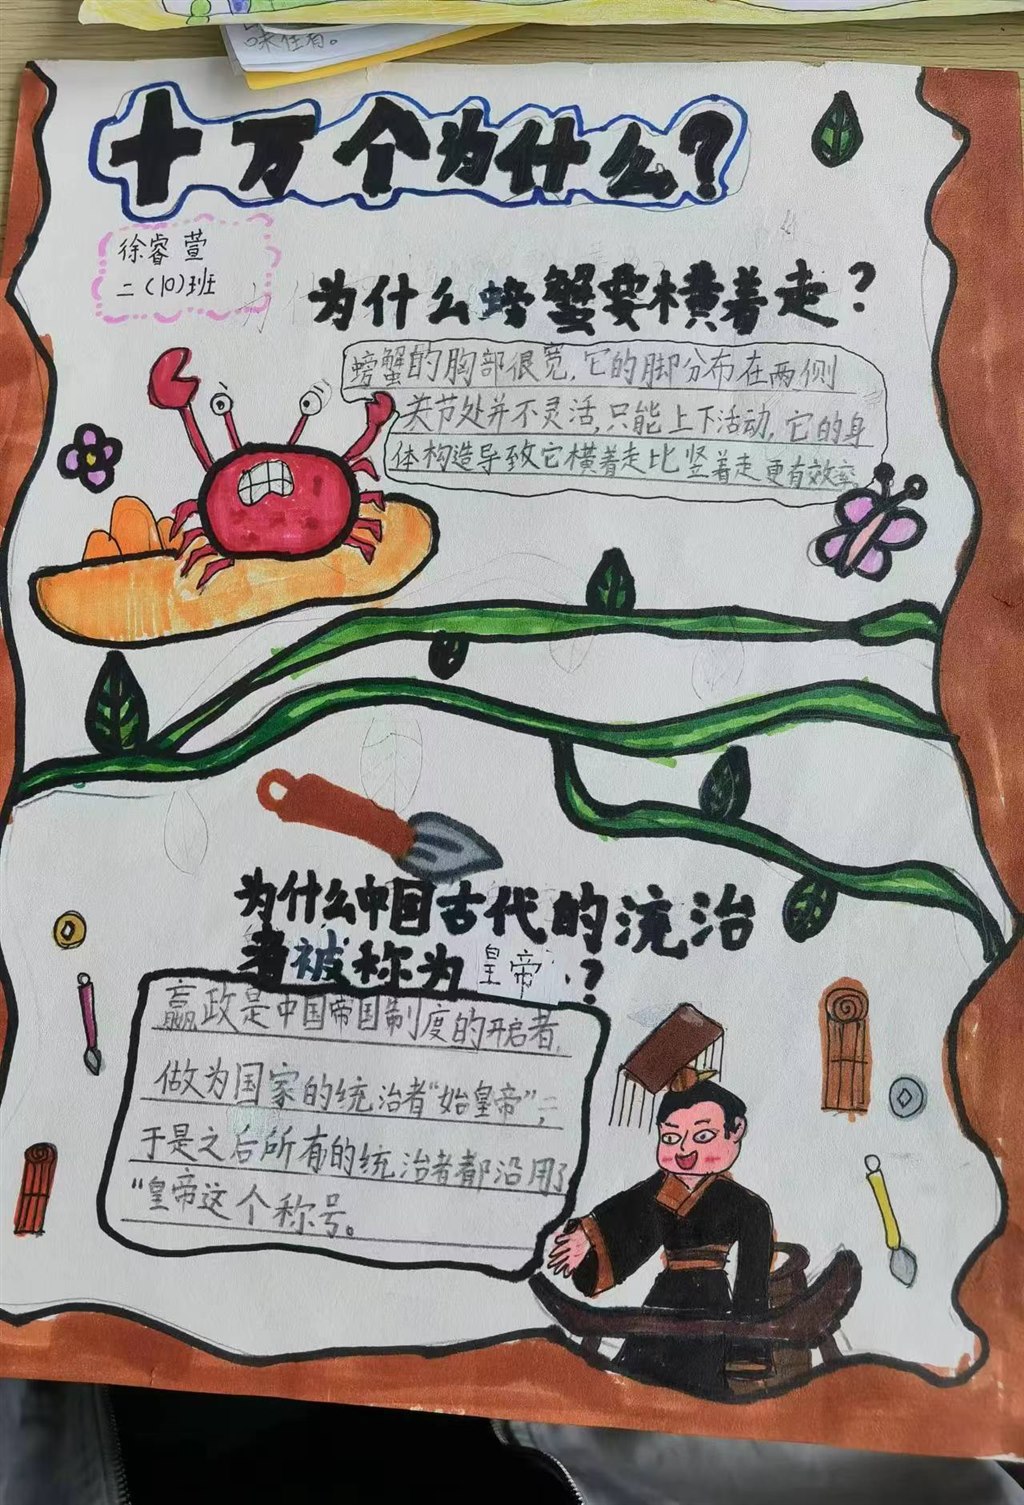 味住有。
十万个为什么?
徐睿萱
二(10)班
为什么螃蟹要横着走?
螃蟹的胸部很宽,它的脚分布在两侧
关节处并不灵活,只能上下活动,它的身
体构造导致它横着走比竖着走更有效率
为什么中国古代的统治
者被称为皇帝?
嬴政是中国帝国制度的开启者,
做为国家的统治者“始皇帝”,
于是之后所有的统治者都沿用了
“皇帝这个称号。